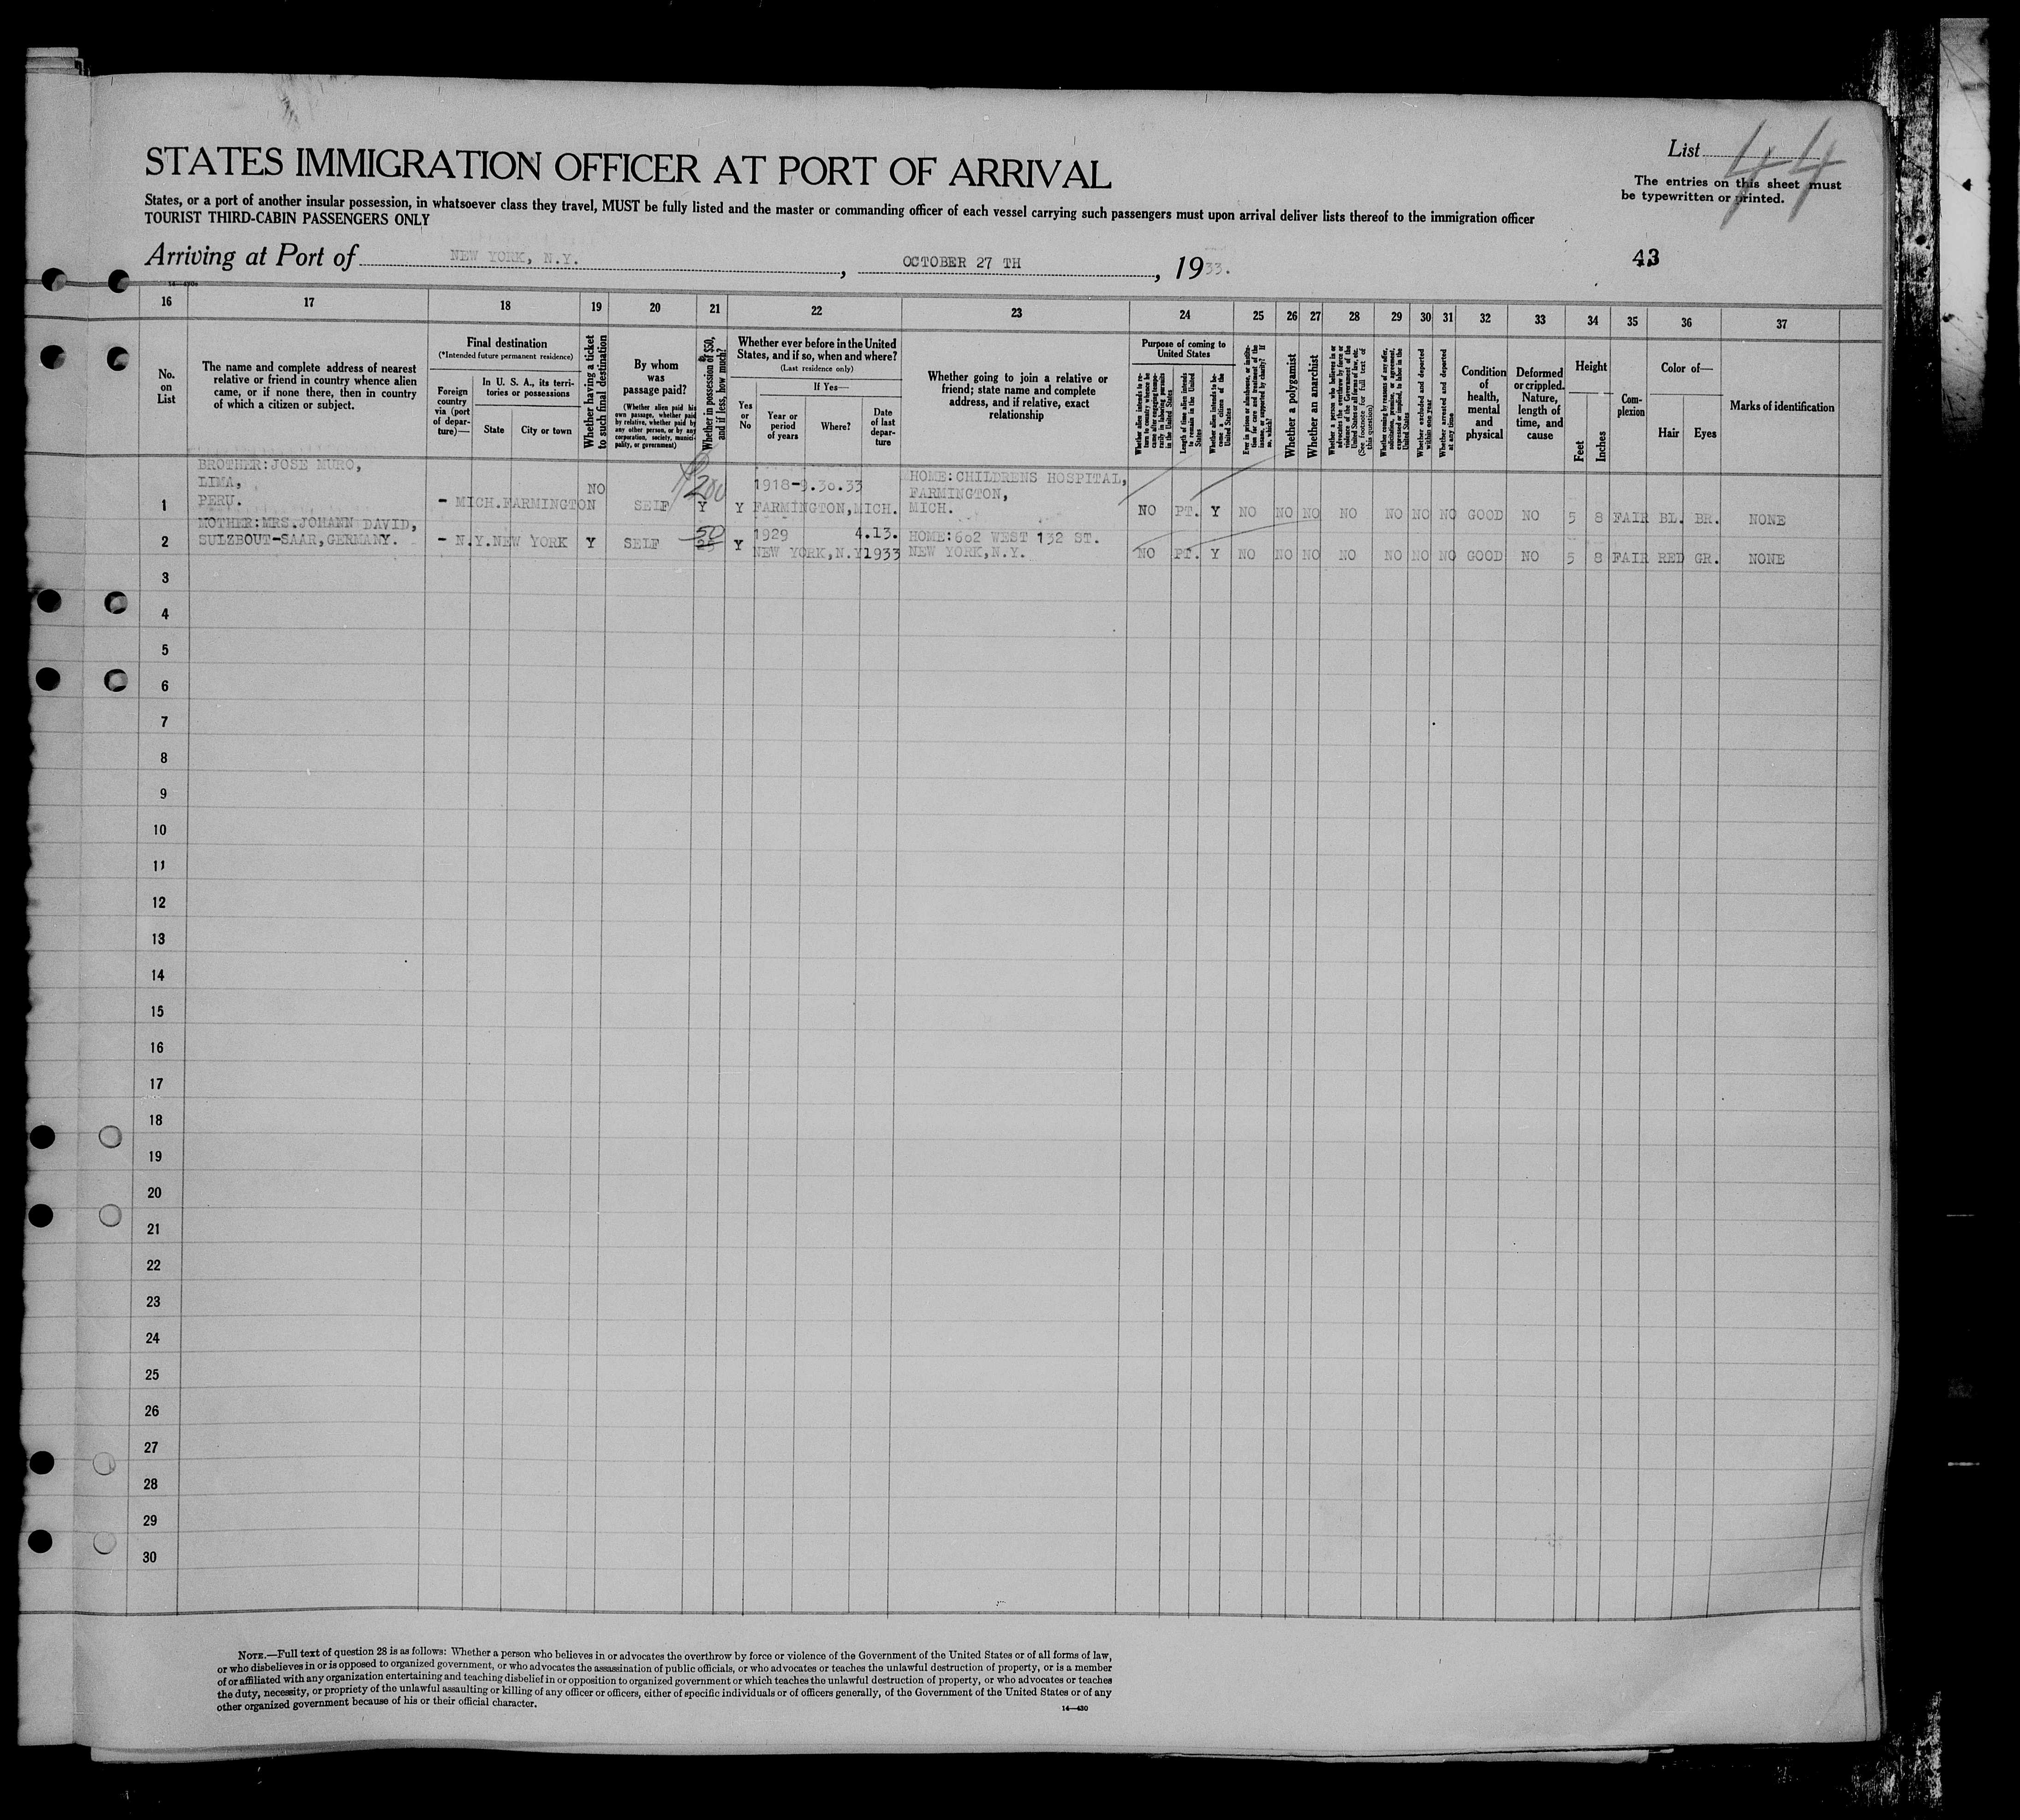 STATES IMMIGRATION OFFICER AT PORT OF ARRIVAL
List 44
The entries on this sheet must
be typewritten or printed.
States, or a port of another insular possession, in whatsoever class they travel, MUST be fully listed and the master or commanding officer of each vessel carrying such passengers must upon arrival deliver lists thereof to the immigration officer
TOURIST THIRD-CABIN PASSENGERS ONLY
Arriving at Port of NEW YORK, N.Y. , OCTOBER 27 TH , 1933.
43
16 17 18 19 20 21 22 23 24 25 26 27 28 29 30 31 32 33 34 35 36 37
No.
on
List
The name and complete address of nearest
relative or friend in country whence alien
came, or if none there, then in country
of which a citizen or subject.
Final destination
(*Intended future permanent residence)
Foreign
country
via (port
of depar-
ture)—
In U. S. A., its terri-
tories or possessions
State
City or town
Whether having a ticket
to such final destination
By whom
was
passage paid?
(Whether alien paid his
own passage, whether paid
by relative, whether paid by
any other person, or by any
corporation, society, munici-
pality, or government)
Whether in possession of $50,
and if less, how much?
Whether ever before in the United
States, and if so, when and where?
(Last residence only)
Yes
or
No
If Yes—
Year or
period
of years
Where?
Date
of last
depar-
ture
Whether going to join a relative or
friend; state name and complete
address, and if relative, exact
relationship
Purpose of coming to
United States
Whether alien intends to re-
turn to country whence he
came after engaging tempo-
rarily in laboring pursuits
in the United States
Length of time alien intends
to remain in the United
States
Whether alien intends to be-
come a citizen of the
United States
Ever in prison or almshouse, or institu-
tion for care and treatment of the
insane, or supported by charity? If
so, which?
Whether a polygamist
Whether an anarchist
Whether a person who believes in or
advocates the overthrow by force or
violence of the Government of the
United States or all forms of law, etc.
(See footnote for full text of
this question)
Whether coming by reason of any offer,
solicitation, promise, or agreement,
expressed or implied, to labor in the
United States
Whether excluded and deported
within one year
Whether arrested and deported
at any time
Condition
of
health,
mental
and
physical
Deformed
or crippled.
Nature,
length of
time, and
cause
Height
Feet
Inches
Com-
plexion
Color of—
Hair
Eyes
Marks of identification
1 BROTHER: JOSE MURO,
LIMA,
PERU.
- MICH. FARMINGTON NO SELF $200 Y Y 1918-9.30.33
FARMINGTON, MICH.
HOME: CHILDRENS HOSPITAL,
FARMINGTON,
MICH.
NO PT. Y NO NO NO NO NO NO NO GOOD NO 5 8 FAIR BL. BR. NONE
2 MOTHER: MRS. JOHANN DAVID,
SULZBOUT-SAAR, GERMANY.
- N.Y. NEW YORK Y SELF 50 25 Y 1929 4.13.
NEW YORK, N.Y 1933
HOME: 602 WEST 132 ST.
NEW YORK, N.Y.
NO PT. Y NO NO NO NO NO NO NO GOOD NO 5 8 FAIR RED GR. NONE
3
4
5
6
7
8
9
10
11
12
13
14
15
16
17
18
19
20
21
22
23
24
25
26
27
28
29
30
NOTE.—Full text of question 28 is as follows: Whether a person who believes in or advocates the overthrow by force or violence of the Government of the United States or of all forms of law,
or who disbelieves in or is opposed to organized government, or who advocates the assassination of public officials, or who advocates or teaches the unlawful destruction of property, or is a member
of or affiliated with any organization entertaining and teaching disbelief in or opposition to organized government or which teaches the unlawful destruction of property, or who advocates or teaches
the duty, necessity, or propriety of the unlawful assaulting or killing of any officer or officers, either of specific individuals or of officers generally, of the Government of the United States or of any
other organized government because of his or their official character.
14—430